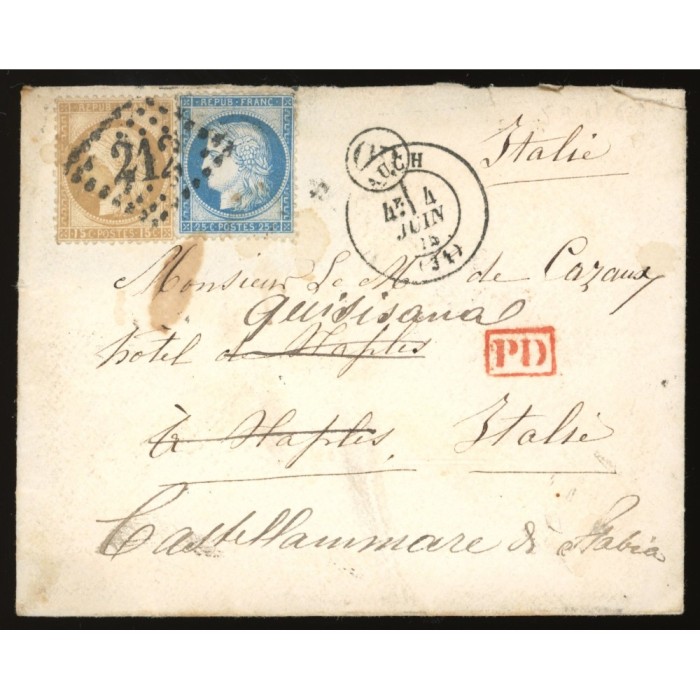 REPUB
REPUB · FRANC
212
15 C · POSTES · 15 C
25 C · POSTES · 25 C
Italie
AUCH
4 JUIN
(31)
Monsieur Le M de Cazaux
Quisisana
hotel de Naples
à Naples, Italie
PD
Castellammare di Stabia